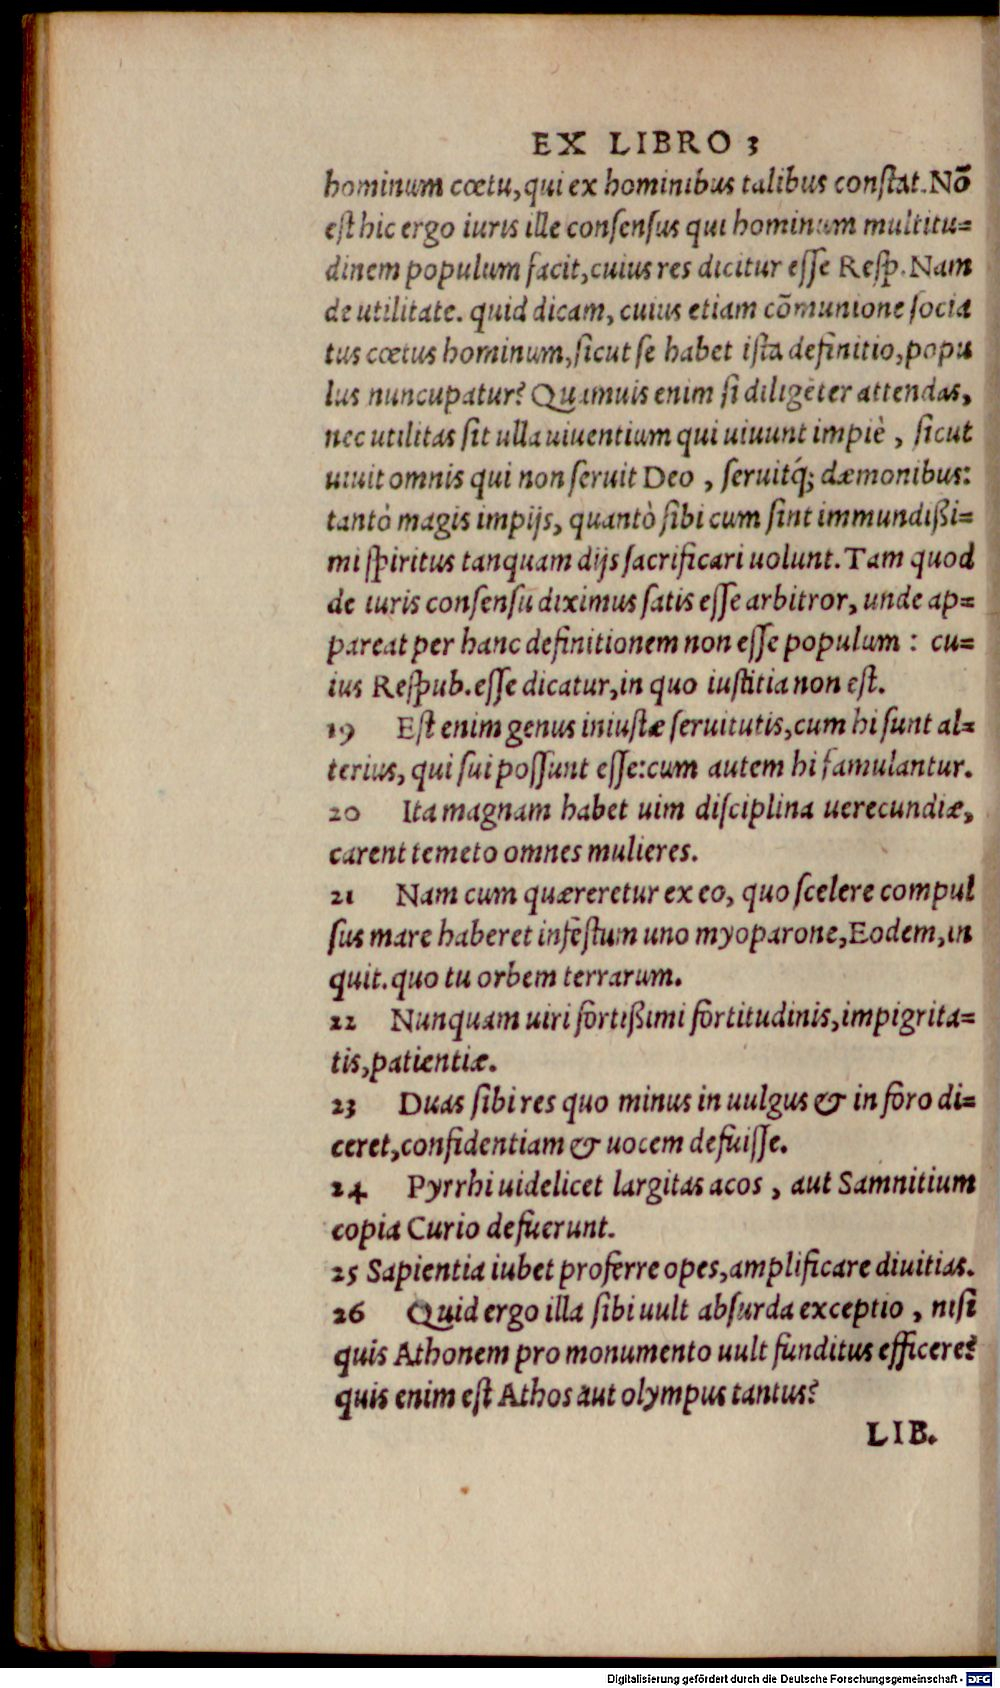 EX LIBRO 3
hominum cœtu, qui ex hominibus talibus constat. Nõ
est hic ergo iuris ille consensus qui hominum multitu=
dinem populum facit, cuius res dicitur esse Resp. Nam
de utilitate. quid dicam, cuius etiam cõmunione socia
tus cœtus hominum, sicut se habet ista definitio, popu
lus nuncupatur? Quamuis enim si diligẽter attendas,
nec utilitas sit ulla uiuentium qui uiuunt impiè, sicut
uiuit omnis qui non seruit Deo, seruitq́; dæmonibus:
tantò magis impijs, quantò sibi cum sint immundißi=
mi spiritus tanquam dijs sacrificari uolunt. Tam quod
de iuris consensu diximus satis esse arbitror, unde ap=
pareat per hanc definitionem non esse populum: cu=
ius Respub. esse dicatur, in quo iustitia non est.
19 Est enim genus iniustæ seruitutis, cum hi sunt al=
terius, qui sui possunt esse: cum autem hi famulantur.
20 Ita magnam habet uim disciplina uerecundiæ,
carent temeto omnes mulieres.
21 Nam cum quæreretur ex eo, quo scelere compul
sus mare haberet infestum uno myoparone, Eodem, in
quit. quo tu orbem terrarum.
22 Nunquam uiri fortißimi fortitudinis, impigrita=
tis, patientiæ.
23 Duas sibi res quo minus in uulgus & in foro di=
ceret, confidentiam & uocem defuisse.
24 Pyrrhi uidelicet largitas acos, aut Samnitium
copia Curio defuerunt.
25 Sapientia iubet proferre opes, amplificare diuitias.
26 Quid ergo illa sibi uult absurda exceptio, nisi
quis Athonem pro monumento uult funditus efficere?
quis enim est Athos aut olympus tantus?
LIB.
Digitalisierung gefördert durch die Deutsche Forschungsgemeinschaft - DFG